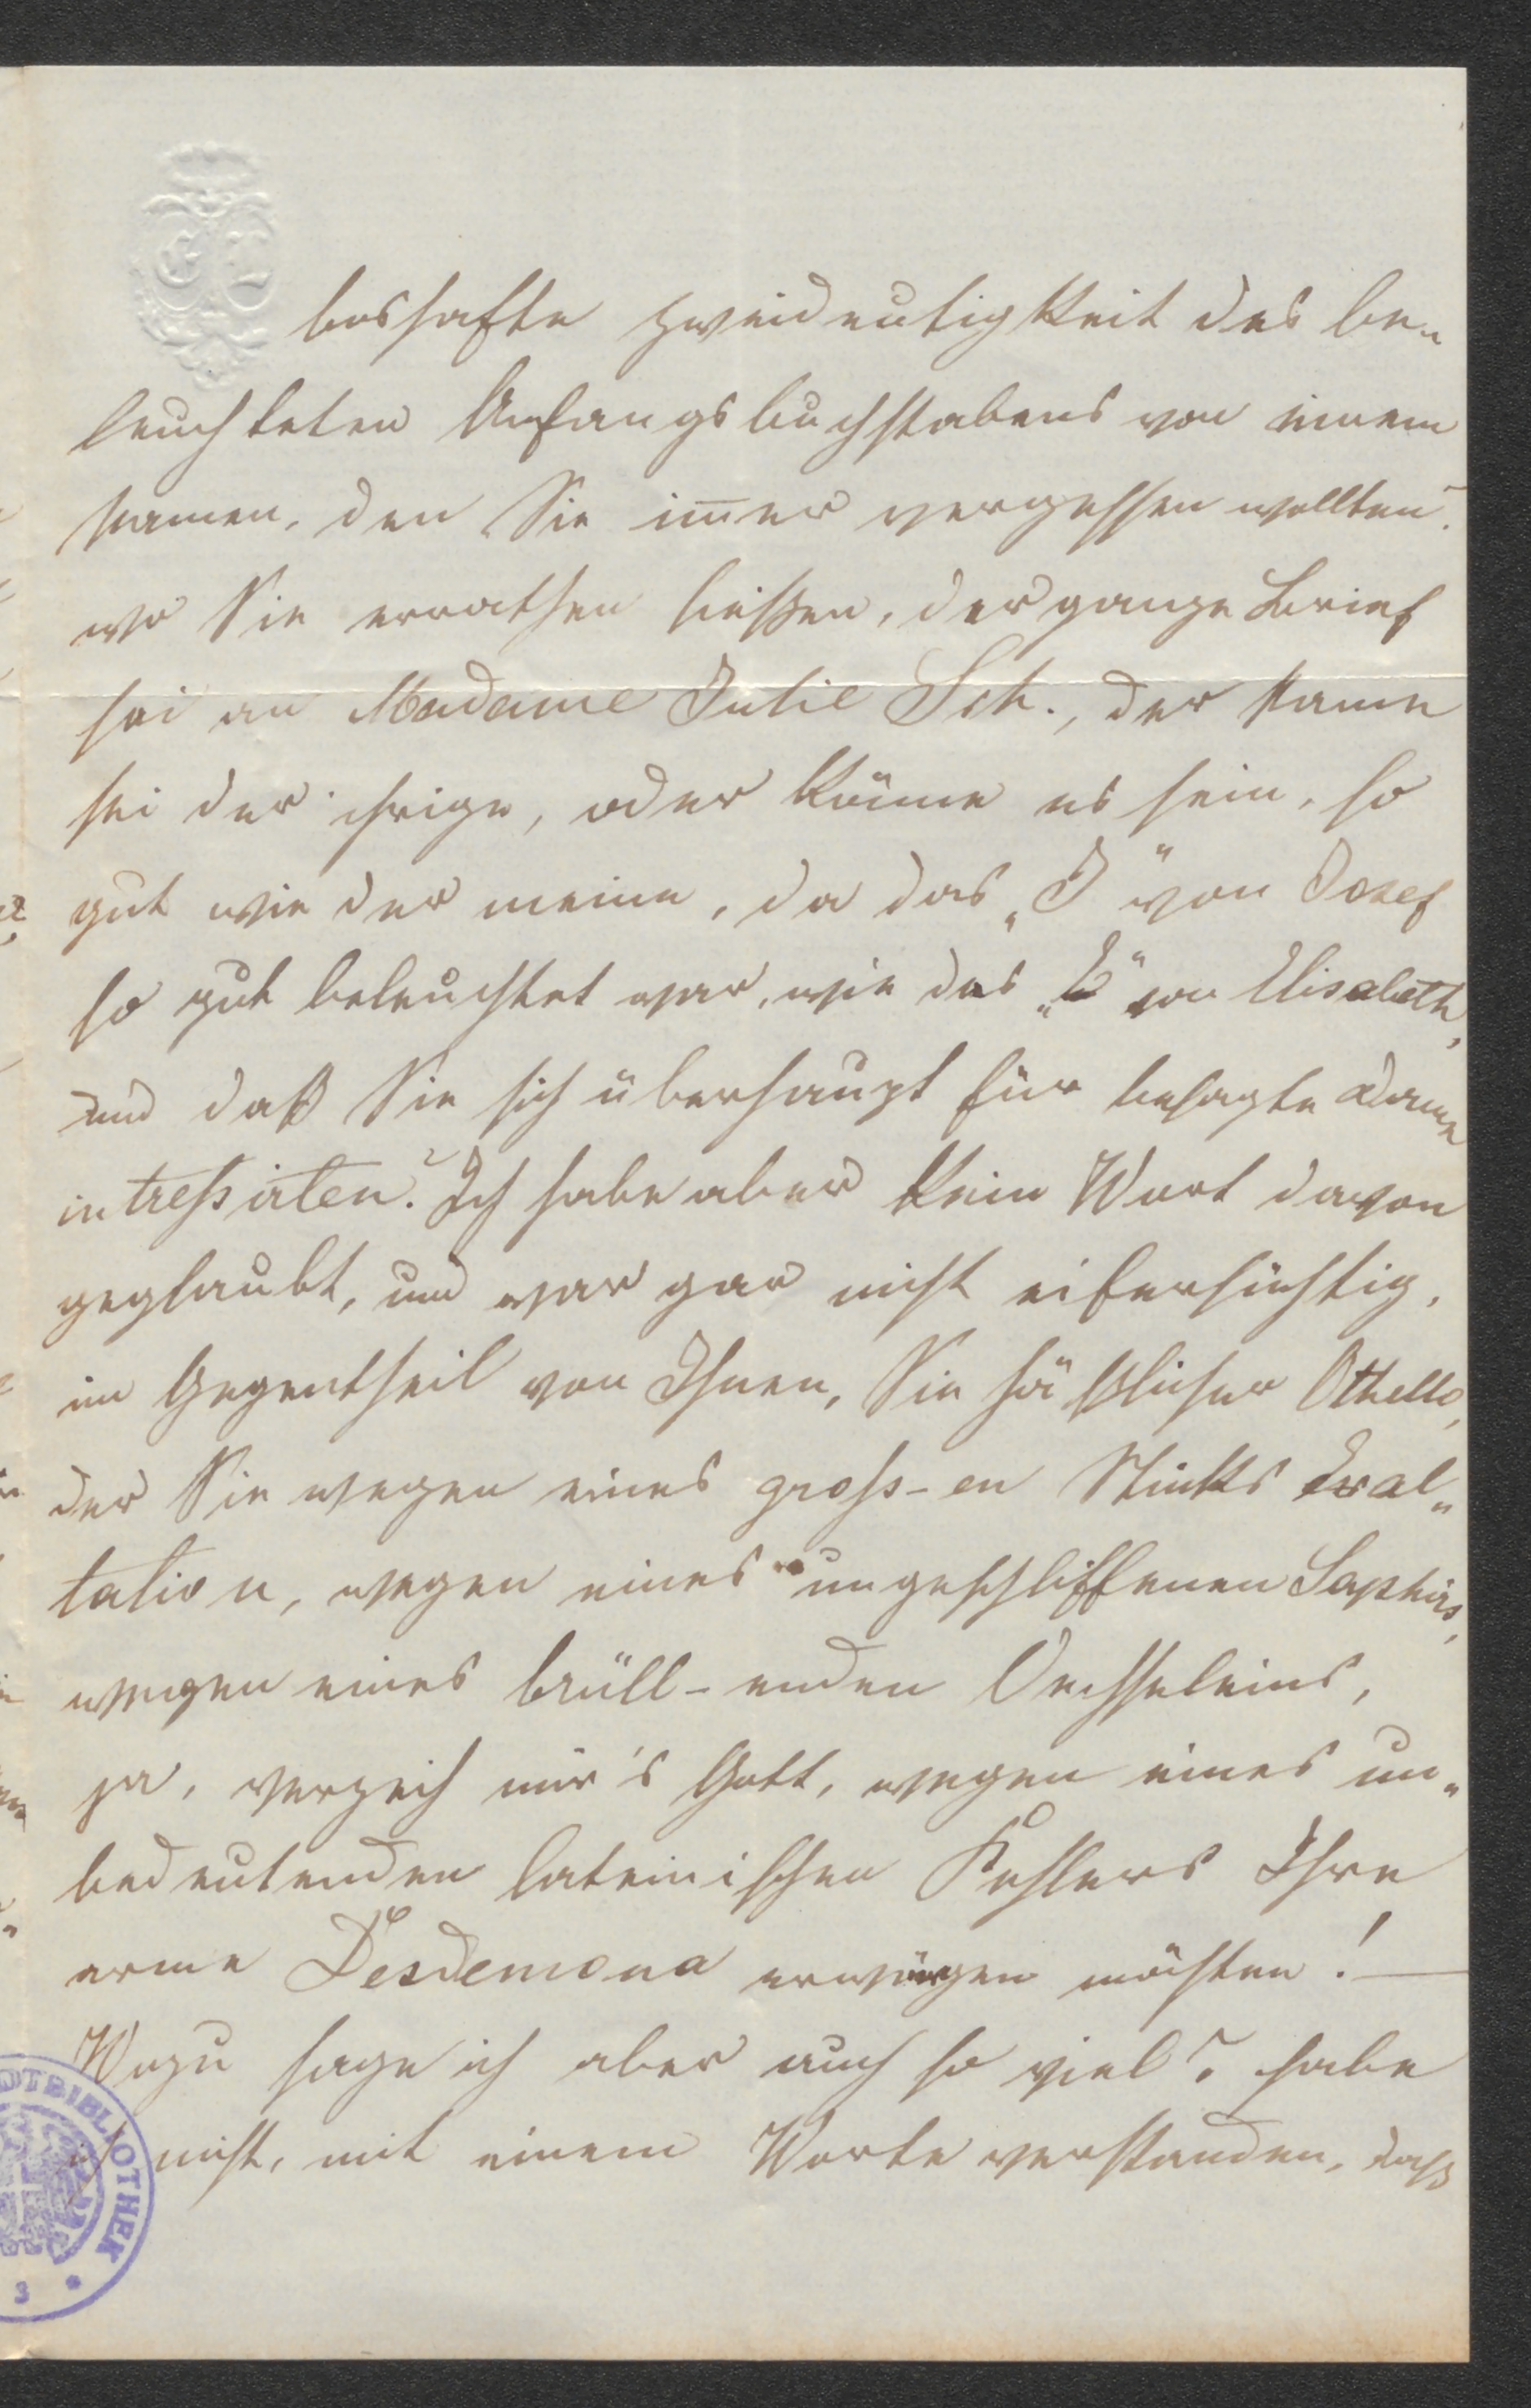 boshafte Zweideutigkeit des be„
leuchteten Anfangsbuchstabens von einem
Namen, den Sie im̅er vergessen wollten.
wo Sie errathen ließen, der ganze Brief
sei an Madame Julie Sch., der Name
sei der ihrige, oder könne es sein, so
gut wie der meine, da das „J“ von Josef
so gut beleuchtet war, wie das „E“ von Elisabeth,
und daß Sie sich überhaupt für besagte Dame
intreßirten? Ich habe aber kein Wort davon
geglaubt, und war gar nicht eifersüchtig,
im Gegentheil von Ihnen, Sie häßlicher Othello,
der Sie wegen eines gross-en Stücks Exal„
tation, wegen eines ungeschliffenen Saphirs,
wegen eines brüll-enden Oechseleins,
ja, verzeih mir's Gott, wegen eines un„
bedeutenden lateinischen Fehlers Ihre
arme Desdemona erwürgen möchten! —
Wozu sage ich aber auch so viel? habe
ich nicht, mit einem Worte verstanden, dass
DTBIBLIOTHEK
3 *